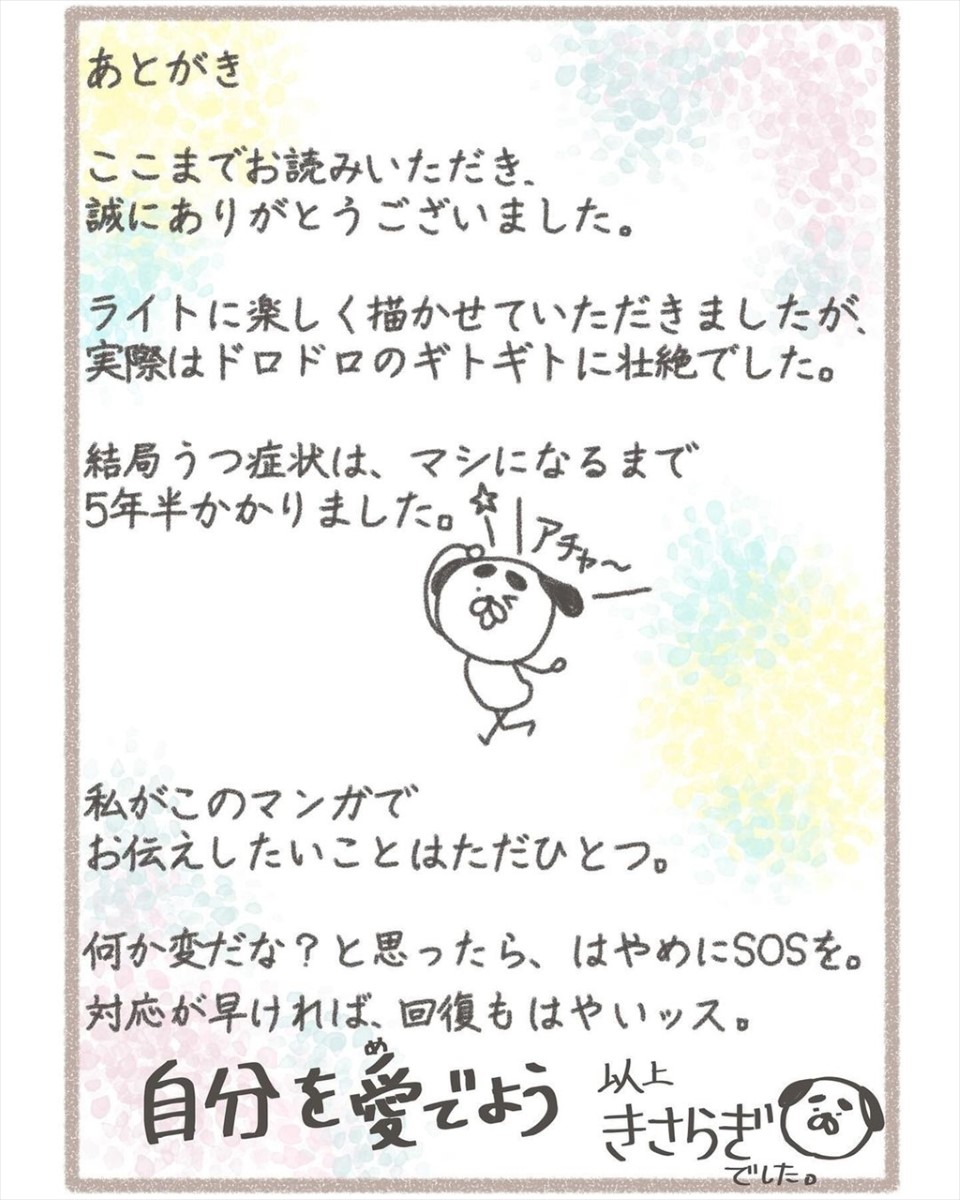 あとがき
ここまでお読みいただき、
誠にありがとうございました。
ライトに楽しく描かせていただきましたが、
実際はドロドロのギトギトに壮絶でした。
結局うつ症状は、マシになるまで
5年半かかりました。
アチャ〜
私がこのマンガで
お伝えしたいことはただひとつ。
何か変だな？と思ったら、はやめにSOSを。
対応が早ければ、回復もはやいッス。
め
自分を愛でよう
以上
きさらぎ
でした。